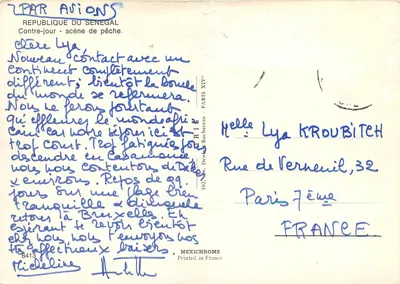 PAR AVION
REPUBLIQUE DU SENEGAL
Contre-jour - scène de pêche.
Chère Lya,
Nouveau contact avec un
continent complètement
différent; bientôt la boucle
du monde se refermera.
Nous ne ferons pourtant
qu'effleurer le monde afri-
cain car notre séjour ici est
trop court. Trop fatigués pour
descendre en Casamance
nous nous contentons de
& environs. Repos de
jours sur une plage bien
tranquille & dimanche
retour à Bruxelles. En
espérant te revoir bientôt
chez nous, nous t'envoyons nos
affectueux baisers.
Micheline
6413
MEXICHROME
Printed in France
PARIS XIVe
Melle Lya KROUBITCH
Rue de Verneuil, 32
Paris 7ème
FRANCE